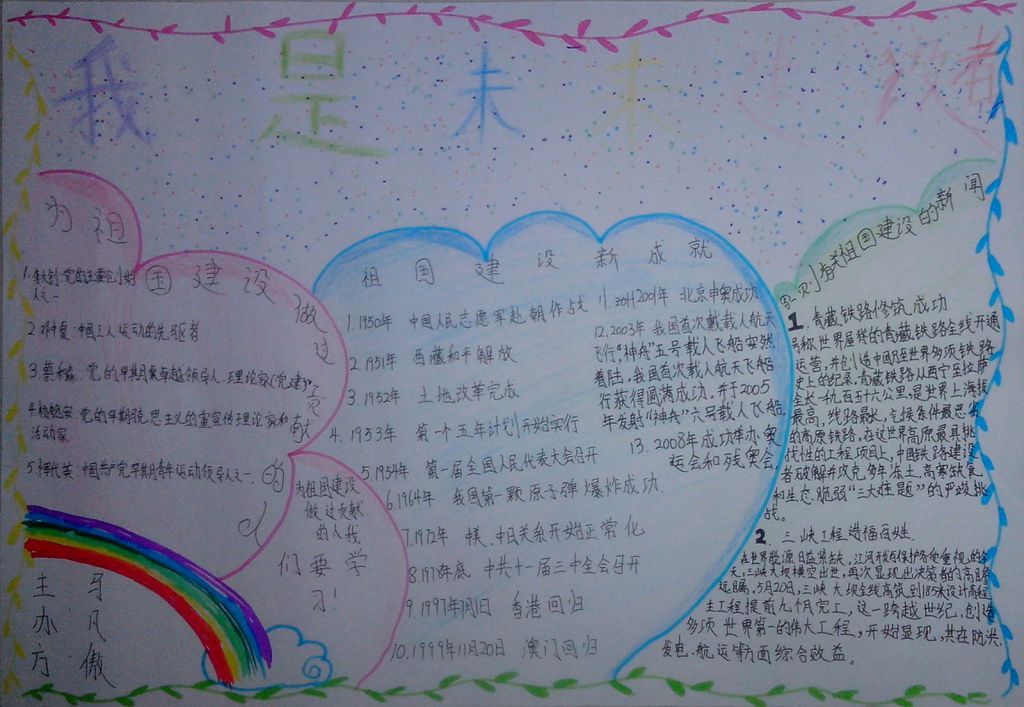 我是未来建设者
为祖国建设做过贡献的人
1.李大钊:党的主要创始人之一
2.邓中夏:中国工人运动的先驱者
3.蔡和森:党的早期卓越领导人.理论家(党建)
4.杨匏安:党的早期
思主义的宣传理论家和
活动家
5.恽代英:中国共产党早期青年运动领导人之一.
为祖国建设
做过贡献
的人我
们要学
习!
主 马
办 凡
方 傲
祖国建设新成就
1.1950年 中国人民志愿军赴朝作占戈
2.1951年 西藏和平解放
3.1952年 土地改革完成
4.1953年 第一个五年计划开始实行
5.1954年 第一届全国人民代表大会召开
6.1964年 我国第一颗原子弹爆炸成功.
7.1972年 中日关系开始正常化
8.1978年底 中共十一届三中全会召开
9.1997年7月1日 香港回归
10.1999年11月20日 澳门回归
11.2001年 北京申奥成功
12.2003年 我国首次载人航天
飞行"神舟"五号载人飞船安然
着陆,我国首次载人航天飞船
行获得圆满成功.并于2005
年发射"神舟"六号载人飞船.
13.2008年成功举办奥
运会和残奥会.
有关祖国建设的新闻
1.青藏铁路修筑成功
号称世界屋脊的青藏铁路全线开通
运营,并创造中国乃至世界多项铁路
史上的纪录.青藏铁路从西宁至拉萨
全长一九百五十六公里,是世界上海拔
最高,线路最长,气候条件最恶劣
的高原铁路,在这世界高原最具挑
战性的工程项目上,中国铁路建设
者破解并攻克多年冻土,高寒缺氧
和生态脆弱"三大难题"的严峻挑
战。
2.三峡工程造福百姓.
在世界能源日益紧缺,江河开发与保护备受重视的今
天,三峡大坝横空出世,再次显现出决策者的高瞻
远瞩,5月20日,三峡大坝全线高筑到185米设计高程
主工程提前九个月完工,这一跨越世纪,创造
多项世界第一的伟大工程,开始显现,其在防洪
发电.航运等方面综合效益。